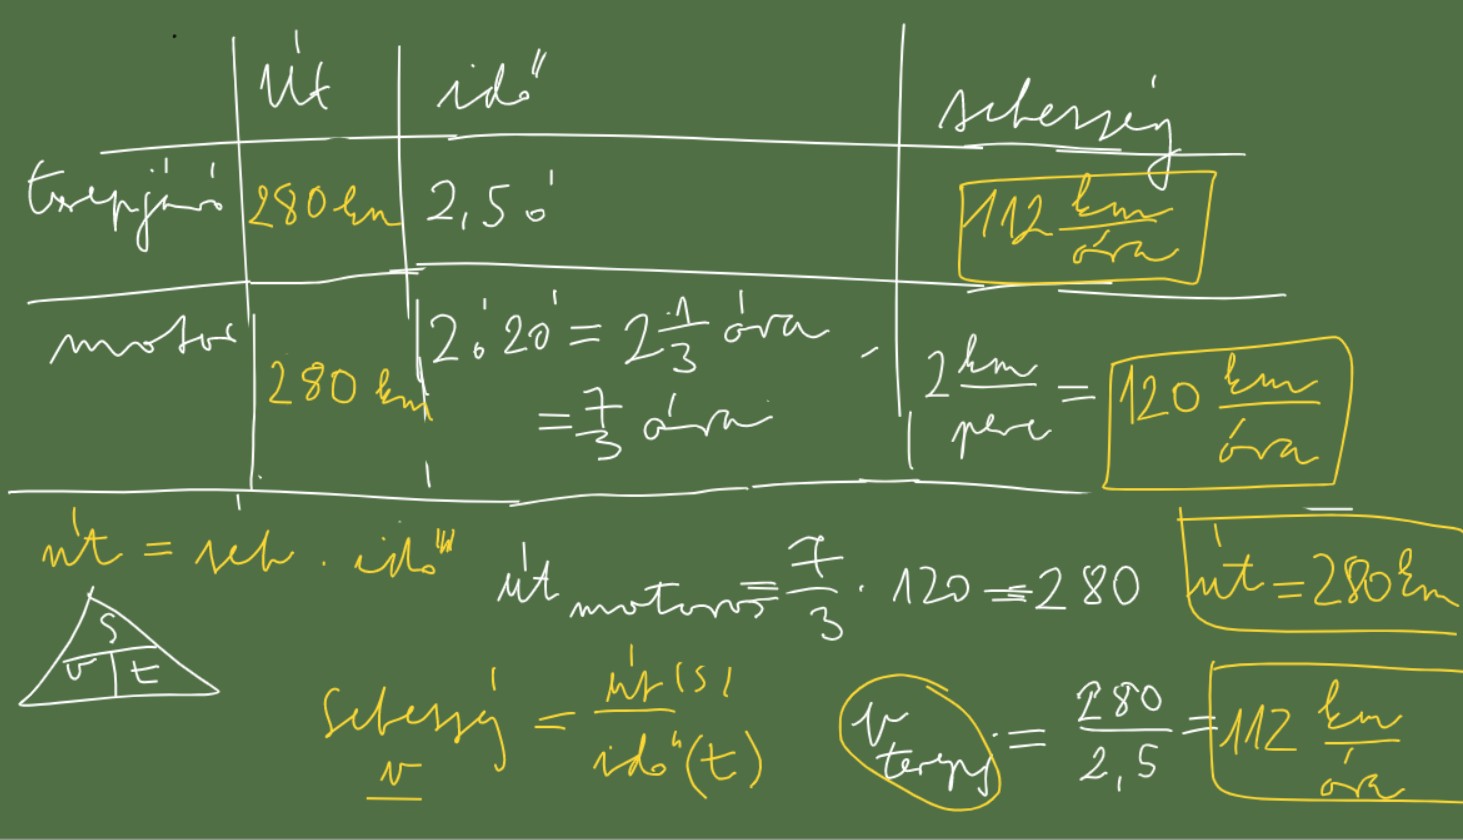 út idő sebesség
terepjáró 280 km 2,5 ó 112 km/óra
motor 280 km 2ó 20' = 2 1/3 óra
= 7/3 óra
2 km/perc = 120 km/óra
út = seb. idő
út motoros = 7/3 · 120 = 280 út = 280 km
S
v t
Sebesség = út (s) / idő (t)
v
v terepj. = 280/2,5 = 112 km/óra